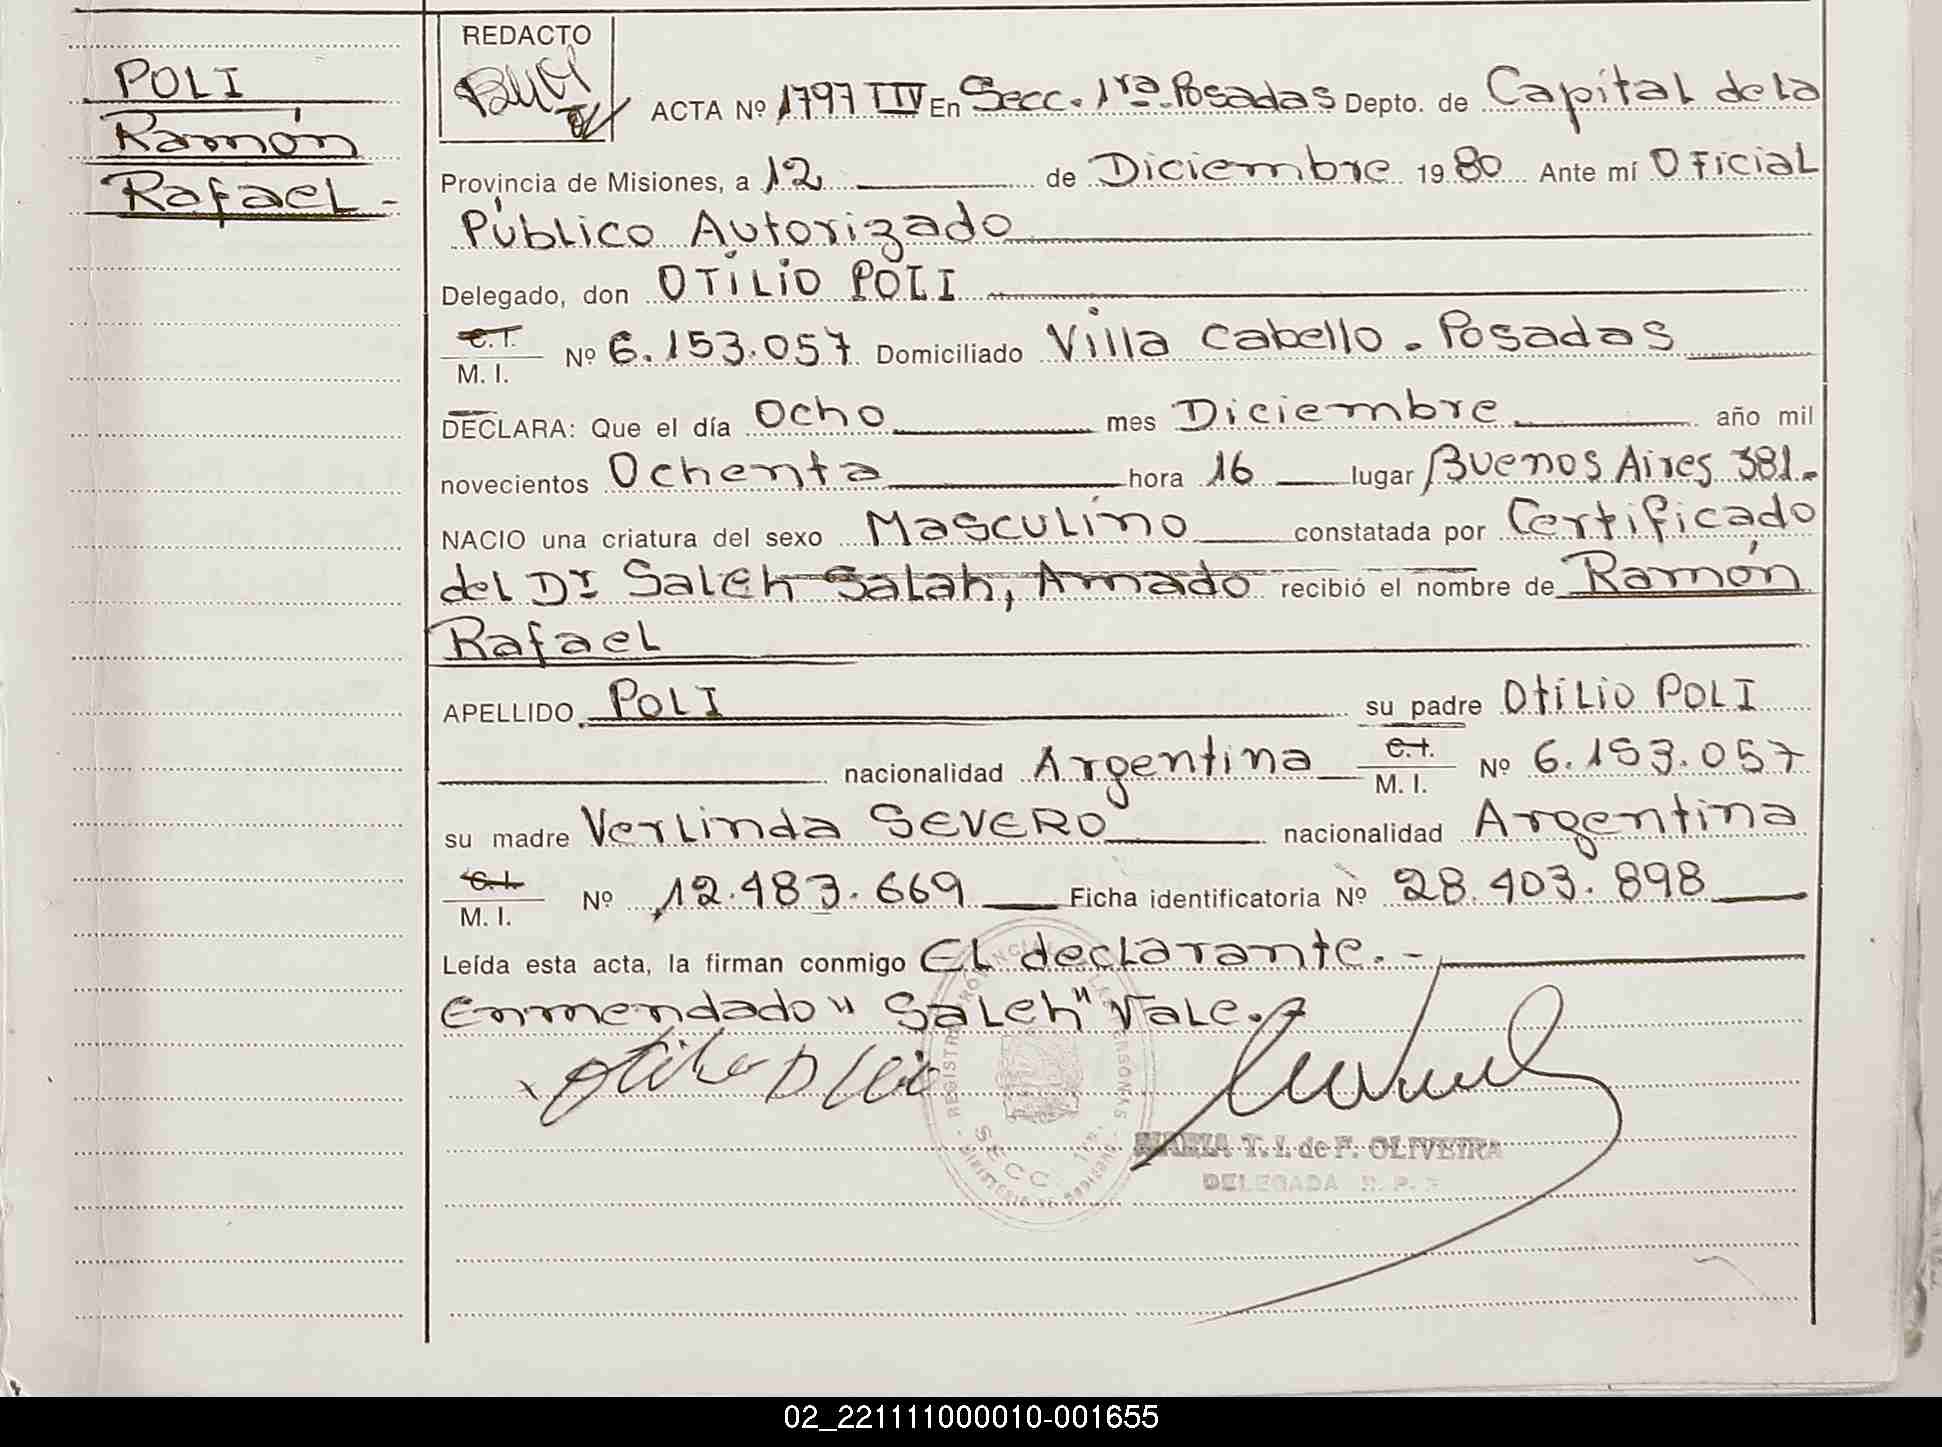 POLI
Ramón
Rafael -
REDACTO
ACTA Nº 1797 TIV En Secc. 1ra. Posadas Depto. de Capital de la
Provincia de Misiones, a 12 de Diciembre 1980 Ante mí Oficial
Público Autorizado
Delegado, don OTILIO POLI
C.I.
M. I. Nº 6.153.057 Domiciliado Villa Cabello - Posadas
DECLARA: Que el día Ocho mes Diciembre año mil
novecientos Ochenta hora 16 lugar Buenos Aires 381.
NACIO una criatura del sexo Masculino constatada por Certificado
del Dr Saleh Salah, Amado recibió el nombre de Ramón
Rafael
APELLIDO POLI su padre Otilio POLI
nacionalidad Argentina C.I.
M. I. Nº 6.153.057
su madre Verlinda SEVERO nacionalidad Argentina
C.I.
M. I. Nº 12.483.669 Ficha identificatoria Nº 28.403.898
Leída esta acta, la firman conmigo EL declarante. -
Enmendado " Saleh" Vale. -
MARIA T. I. de F. OLIVEIRA
DELEGADA R. P.
SECC. 1ra.
02_221111000010-001655